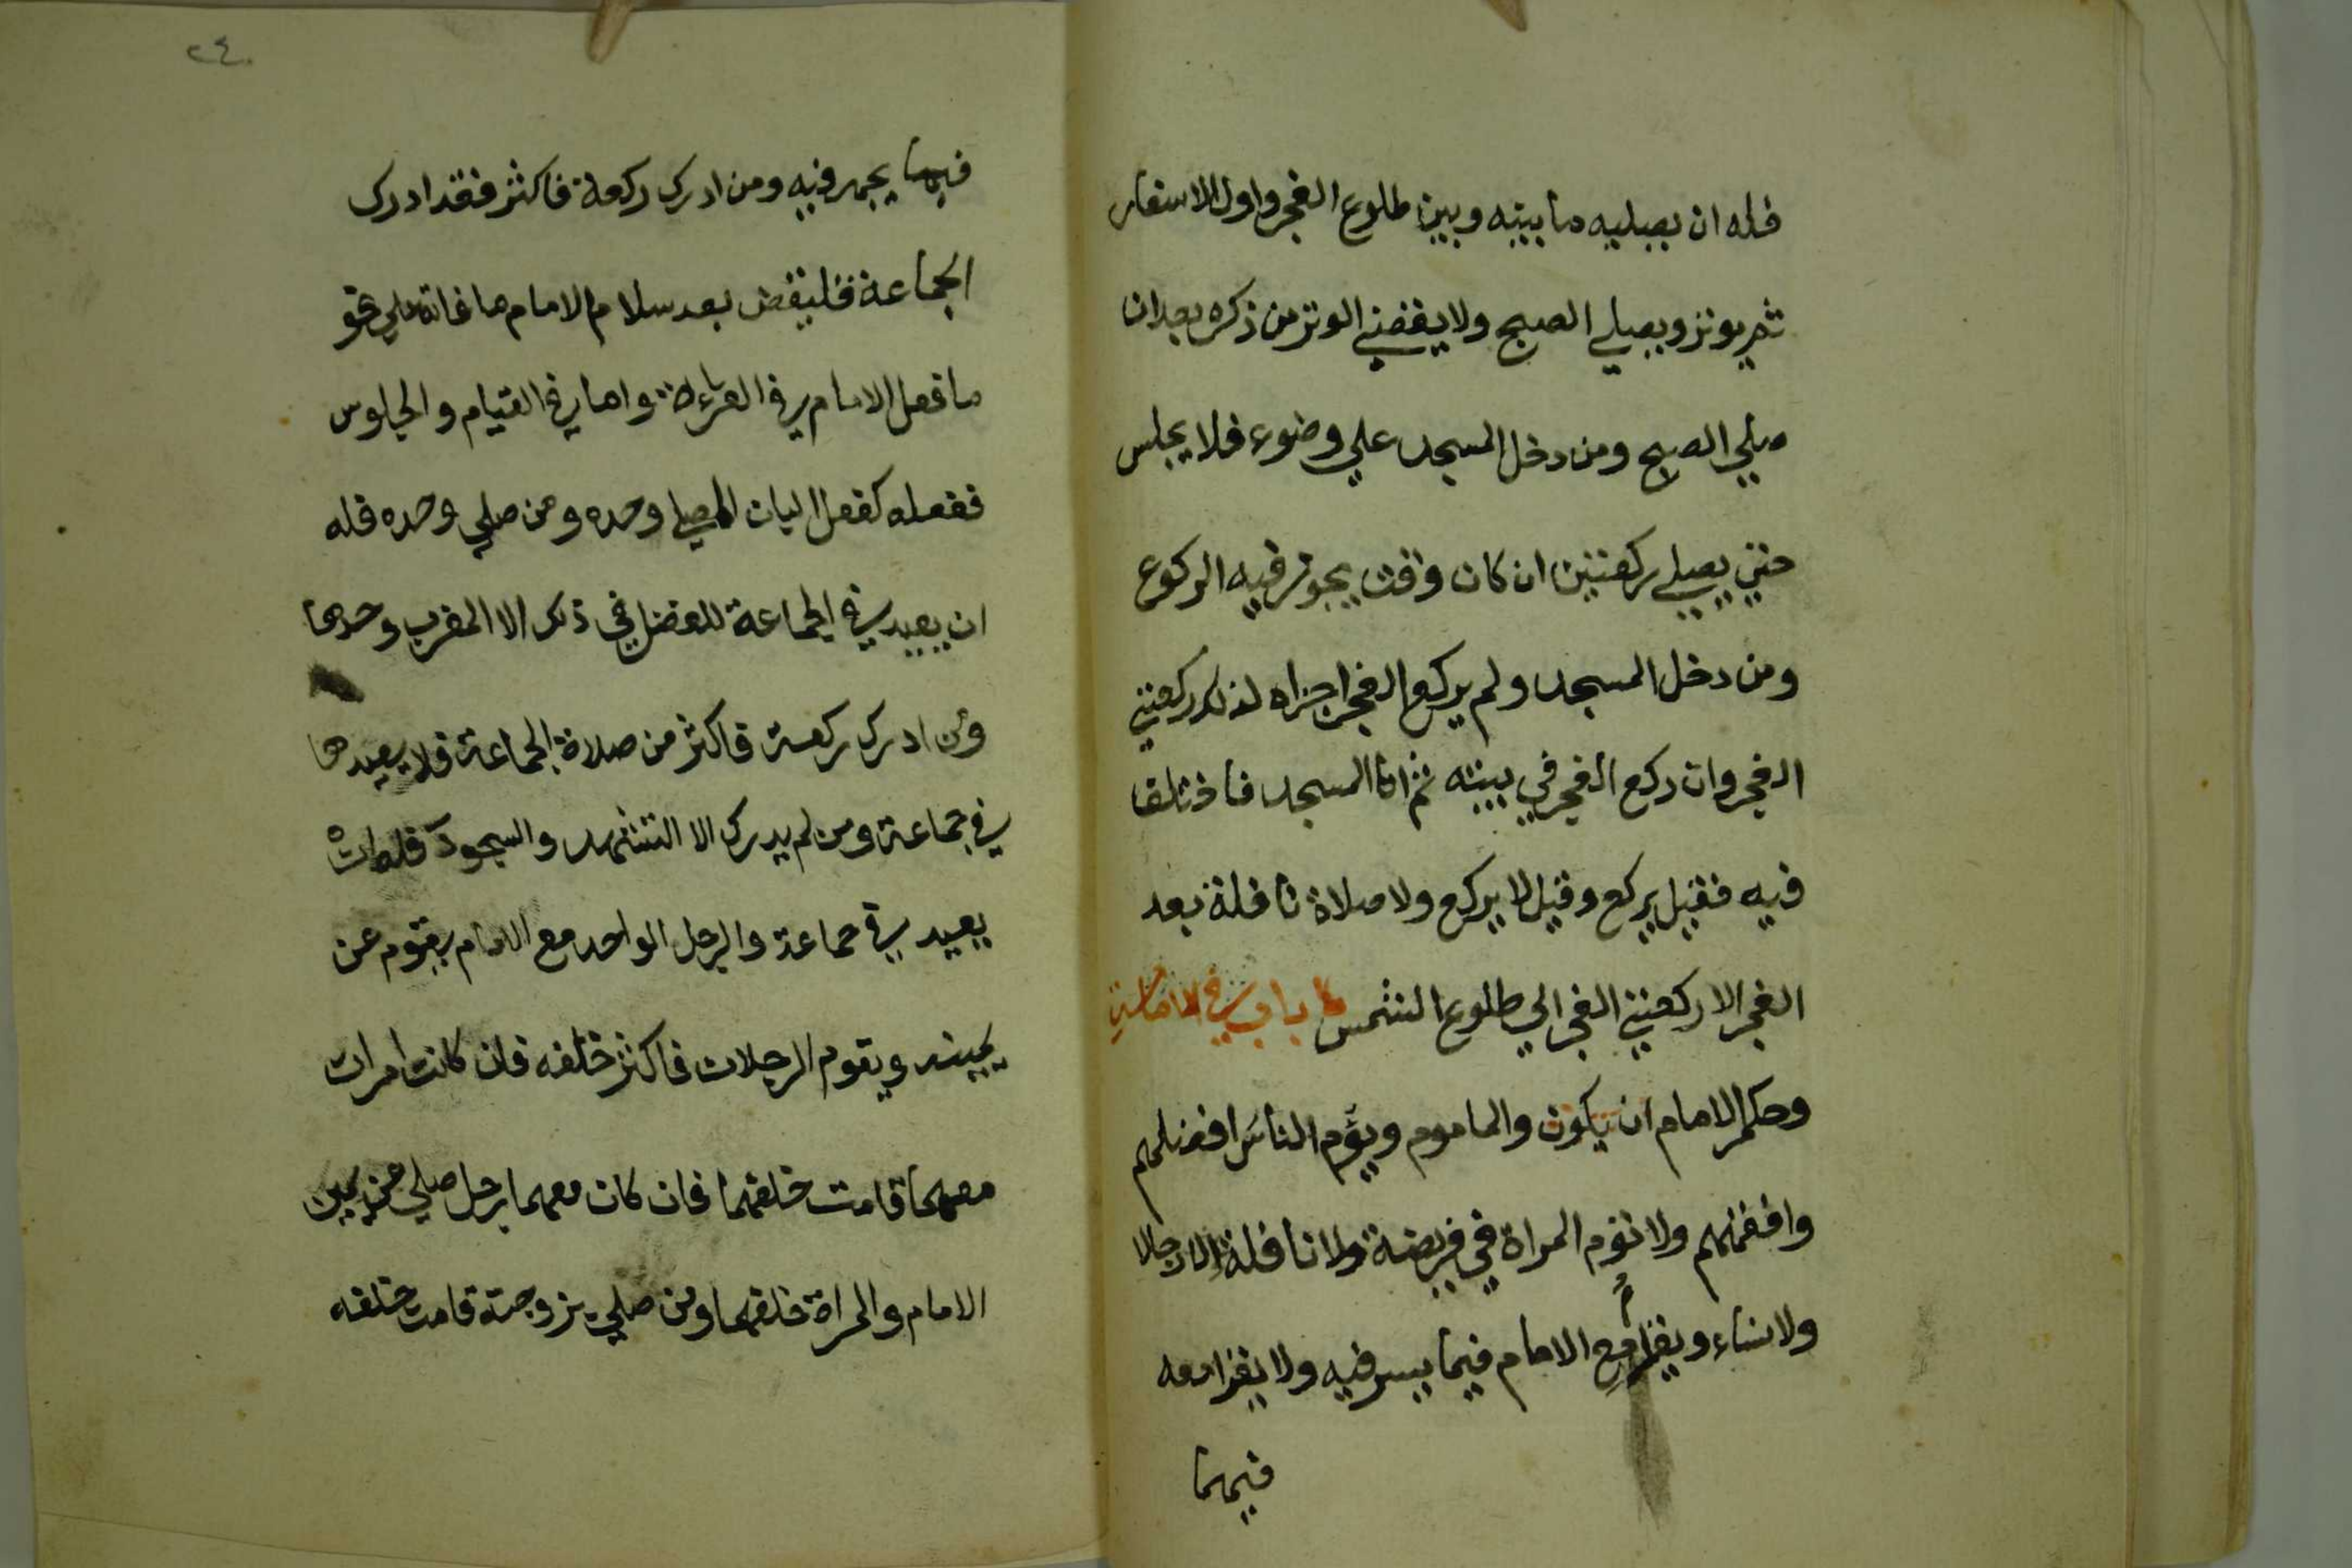 فله ان يصليه ما بينه وبين طلوع الفجر واول الاسفار
ثم يوتر ويصلي الصبح ولا يقضي الوتر من ذكره بعد ان
صلي الصبح ومن دخل المسجد علي وضوء فلا يجلس
حتي يصلي ركعتين ان كان وقت يجوز فيه الركوع
ومن دخل المسجد ولم يركع الفجر اجزاه لذلك ركعتي
الفجر وان ركع الفجر في بيته ثم اتا المسجد فاختلف
فيه فقيل يركع وقيل لا يركع ولا صلاة نافلة بعد
الفجر الا ركعتي الفجر الي طلوع الشمس باب في الامامة
وحكم الامام ان يكون والماموم ويؤم الناس افضلهم
وافقههم ولا تؤم المراة في فريضة ولا نافلة لا رجالا
ولا نساء ويقرا مع الامام فيما يسر فيه ولا يقرا معه
فيما
٢٤٠
فيما يجهر فيه ومن ادرك ركعة فاكثر فقد ادرك
الجماعة فليقض بعد سلام الامام ما فاته علي نحو
ما فعل الامام في القراءة واما في القيام والجلوس
ففعله كفعل البان المصلي وحده ومن صلي وحده فله
ان يعيد في الجماعة للفضل في ذلك الا المغرب وحدها
ومن ادرك ركعة فاكثر من صلاة الجماعة فلا يعيدها
في جماعة ومن لم يدرك الا التشهد والسجود فله ان
يعيد في جماعة والرجل الواحد مع الامام يقوم عن
يمينه ويقوم الرجلان فاكثر خلفه فان كانت امرات
معهما قامت خلفهما فان كان معهما رجل صلي عن يمين
الامام والمراة خلفهما ومن صلي بزوجته قامت خلفه